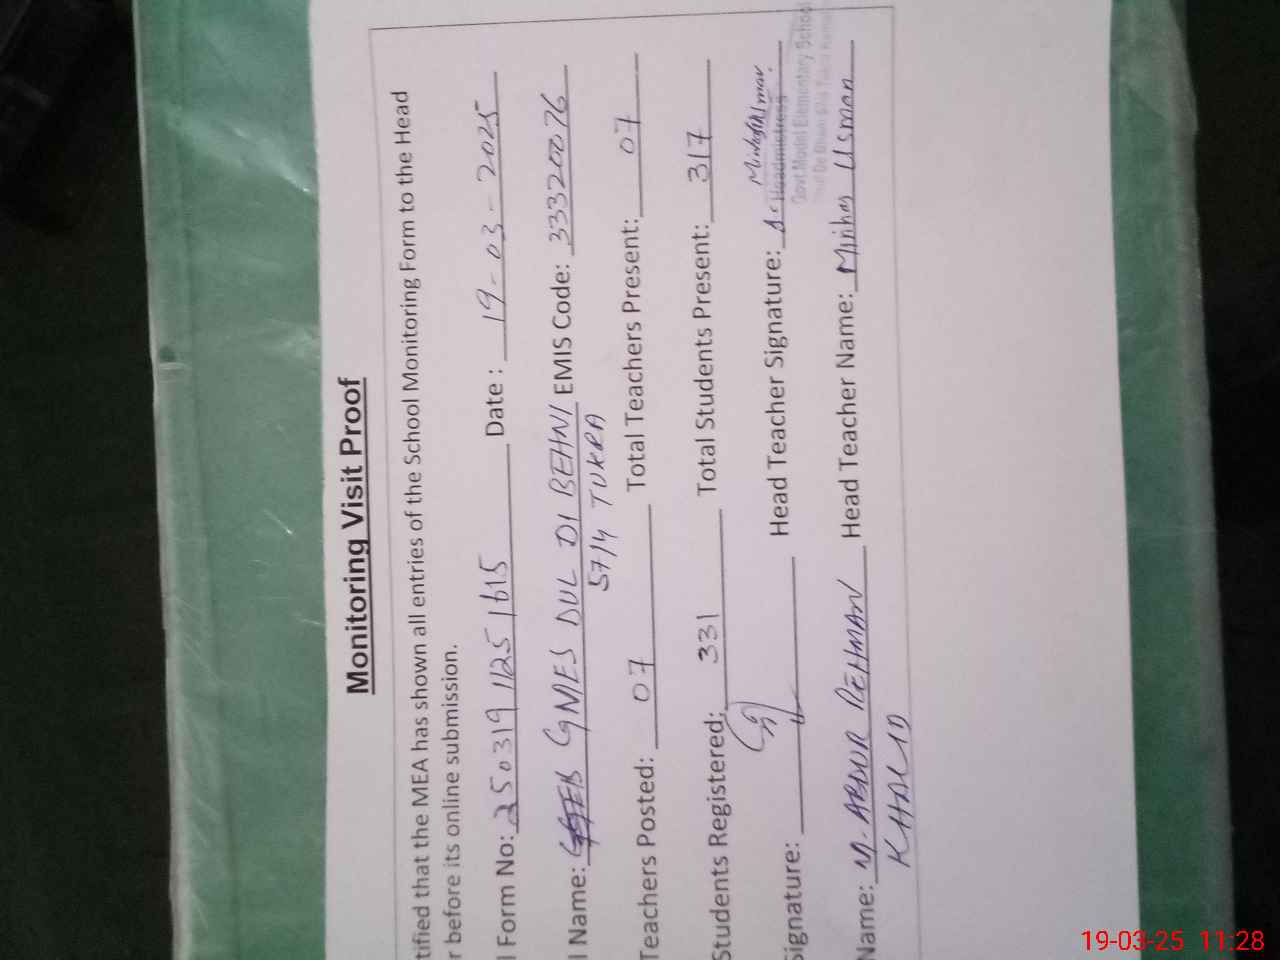 Monitoring Visit Proof
tified that the MEA has shown all entries of the School Monitoring Form to the Head
r before its online submission.
l Form No: 250319 1125 1615 Date : 19-03-2025
l Name: GMES DUL DI BEHNI EMIS Code: 33320076
57/4 TUKRA
Teachers Posted: 07 Total Teachers Present: 07
Students Registered: 331 Total Students Present: 317
Signature: Head Teacher Signature:
Headmistress
Govt. Model Elementary School
Name: M. ABDUR REHMAN Head Teacher Name: Minhas Usman
KHALID
19-03-25 11:28